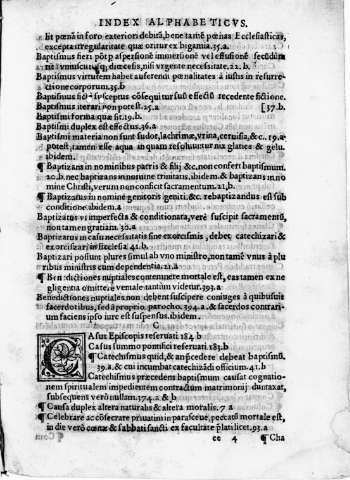 INDEX ALPHABETICVS.
Et pœnā in foro exteriori debitā, bene tamē pœnas Ecclesiasticas,
excepta irregularitate quæ oritur ex bigamia. 35.a.
Baptismus fieri pōt p aspersionē immersionē vel effusionē secūdū
ritū vniuscuiusq; diœcesis, nisi vrgente necessitate. 22. b.
Baptismus virtutem habet auferendi pœnalitates à iustis in resurre-
ctione corporum. 35. b
Baptismus susceptus cōsequitur suū effectū recedente fictione.
Baptismus iterari non potest. 25. a [37. b.
Baptismi forma quæ sit. 19. b.
Baptismi duplex est effectus. 36. a
Baptismi materia non sunt sudor, lachrimæ, vrina, ceruisia, &c. 19. a
potest, tamen esse aqua in quam resoluitur nix glacies & gelu.
ibidem.
¶ Baptizans in nominibus patris & filij &c. non confert baptismum.
20. b. nec baptizans in nomine trinitatis. ibidem. & baptizans in no
mine Christi, verum non conficit sacramentum. 21. b.
¶ Baptizatus in nomine genitoris geniti. &c. rebaptizandus est sub
conditione. ibidem. a
Baptizatus vt imperfecta & conditionata, verè suscipit sacramentū,
non tamen gratiam. 30. a
Baptizatus in casu necessitatis sine exorcismis, debet catechizari &
exorcizari in ecclesia. 41. b.
Baptizari possunt plures simul ab vno ministro, non tamē vnus à plu
ribus ministris cum dependentia. 21. a
¶ Benedictiones nuptiales contemnere mortale est, eas tamen ex ne
gligentia omittere veniale tantùm videtur. 393. a
Benedictiones nuptiales non debent suscipere coniuges à quibusuis
sacerdotibus, sed à proprio parocho. 394. a. & sacerdos contrari-
um faciens ipso iure est suspensus. ibidem.
C
CAsus Episcopis reseruati 184. b
Casus summo pontifici reseruati 183. b.
¶ Catechismus quid, & an præcedere debeat baptismū.
39. a. & cui incumbat catechizādi officium. 41. b.
Catechismus præcedens baptismum causat cognatio-
nem spiritualem impedientem contractum matrimonij duntaxat,
subsequent verò nullam. 374. a & b
¶ Causa duplex altera naturalis & altera moralis. 7. a
¶ Celebrare ac cōsecrare priuatim in parasceue, peccatū mortale est,
in die verò cœnæ & sabbati sancti ex facultate prælati licet. 93. a
cc 4 ¶ Cha